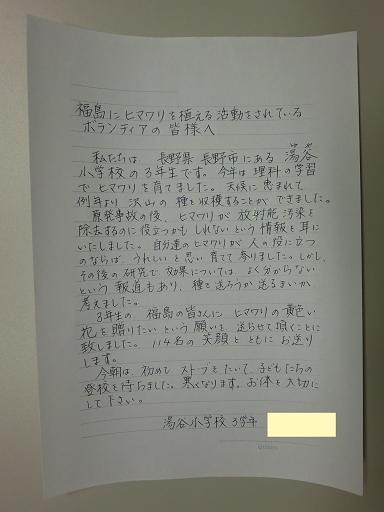 福島にヒマワリを植える活動をされている
ボランティアの皆様へ
私たちは、長野県長野市にある湯谷
小学校の3年生です。今年は理科の学習
でヒマワリを育てました。天候に恵まれて
例年より沢山の種を収穫することができました。
原発事故の後、ヒマワリが放射能汚染を
除去するのに役立つかもしれないという情報を耳に
いたしました。自分達のヒマワリが人の役に立つ
のならば、うれしいと思い育てて参りました。しかし、
その後の研究で効果については、よく分からない
という報道もあり、種を送ろうか送るまいか
考えました。
3年生の福島の皆さんにヒマワリの黄色い
花を贈りたいという願いを、送らせて頂くことに
致しました。114名の笑顔とともにお送り
します。
今朝は、初めてストーブをたいて、子どもたちの
登校を待ちました。寒くなります。お体を大切に
して下さい。
湯谷小学校3学年